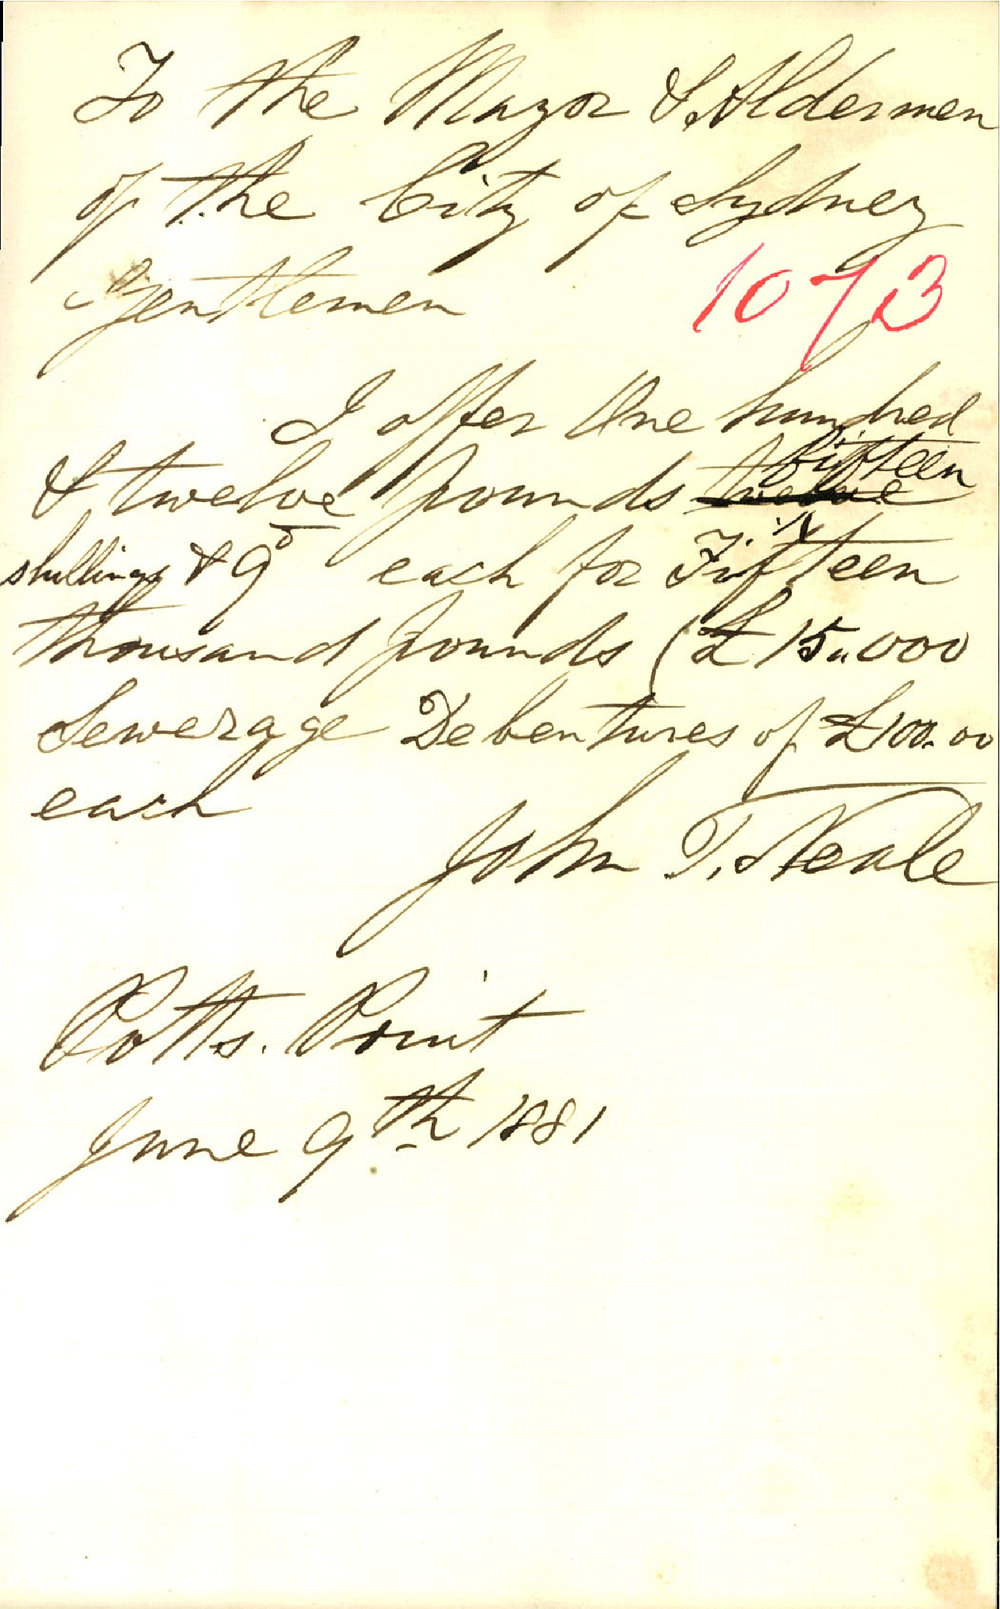 To the Mayor & Aldermen
of the City of Sydney
Gentlemen
1073
I offer One hundred
& twelve pounds twelve fifteen
shillings & 9d each for Fifteen
thousand pounds (£15,000
Sewerage Debentures of £100.00
each
John T. Neale
Potts. Point
June 9th 1881